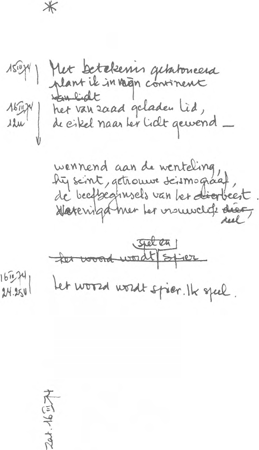 *
15 III 74 Met betekenis getatoeëerd
plant ik in mijn continent
van lidt
16 III 74 het van zaad geladen lid,
12u de eikel naar het licht gewend —
wennend aan de wenteling,
hij seint, getrouwe seismograaf,
de beefbeginsels van het dierbeest.
Verenigd met het vrouwelijk dier
deel,
spelen
het woord wordt spier
16 III 74 het woord wordt spier. Ik speel.
24.25u
Zat. 16 III 74